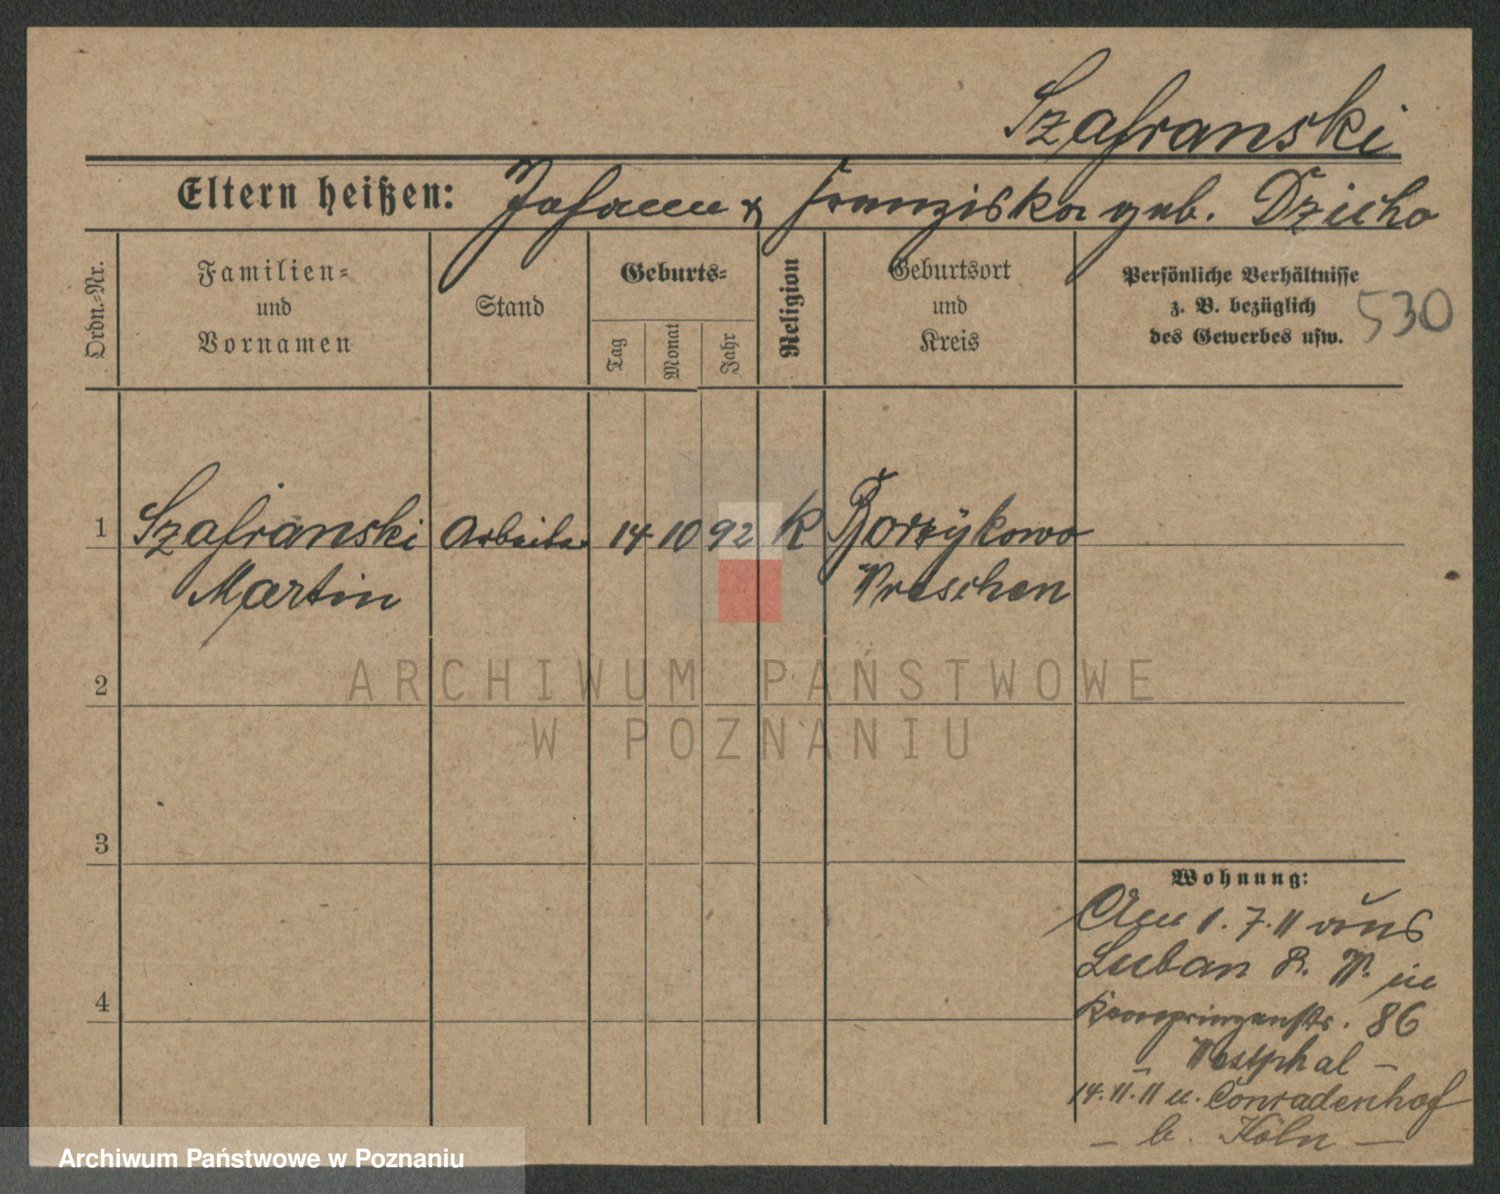 Szafranski
Eltern heißen: Johann & Franziska geb. Dzicho
Ordn.-Nr.
Familien-
und
Vornamen
Stand
Geburts-
Tag
Monat
Jahr
Religion
Geburtsort
und
Kreis
Persönliche Verhältnisse
z. B. bezüglich
des Gewerbes usw.
530
1 Szafranski Arbeiter 14 10 92 K Borzykowo
Martin Wreschen
2
ARCHIWUM PAŃSTWOWE
W POZNANIU
3
Wohnung:
Am 1.7.11 aus
Luban P. W. in
4
Kronprinzenstr. 86
Westphal –
14.11.11 n. Conradenhof
– b. Köln –
Archiwum Państwowe w Poznaniu